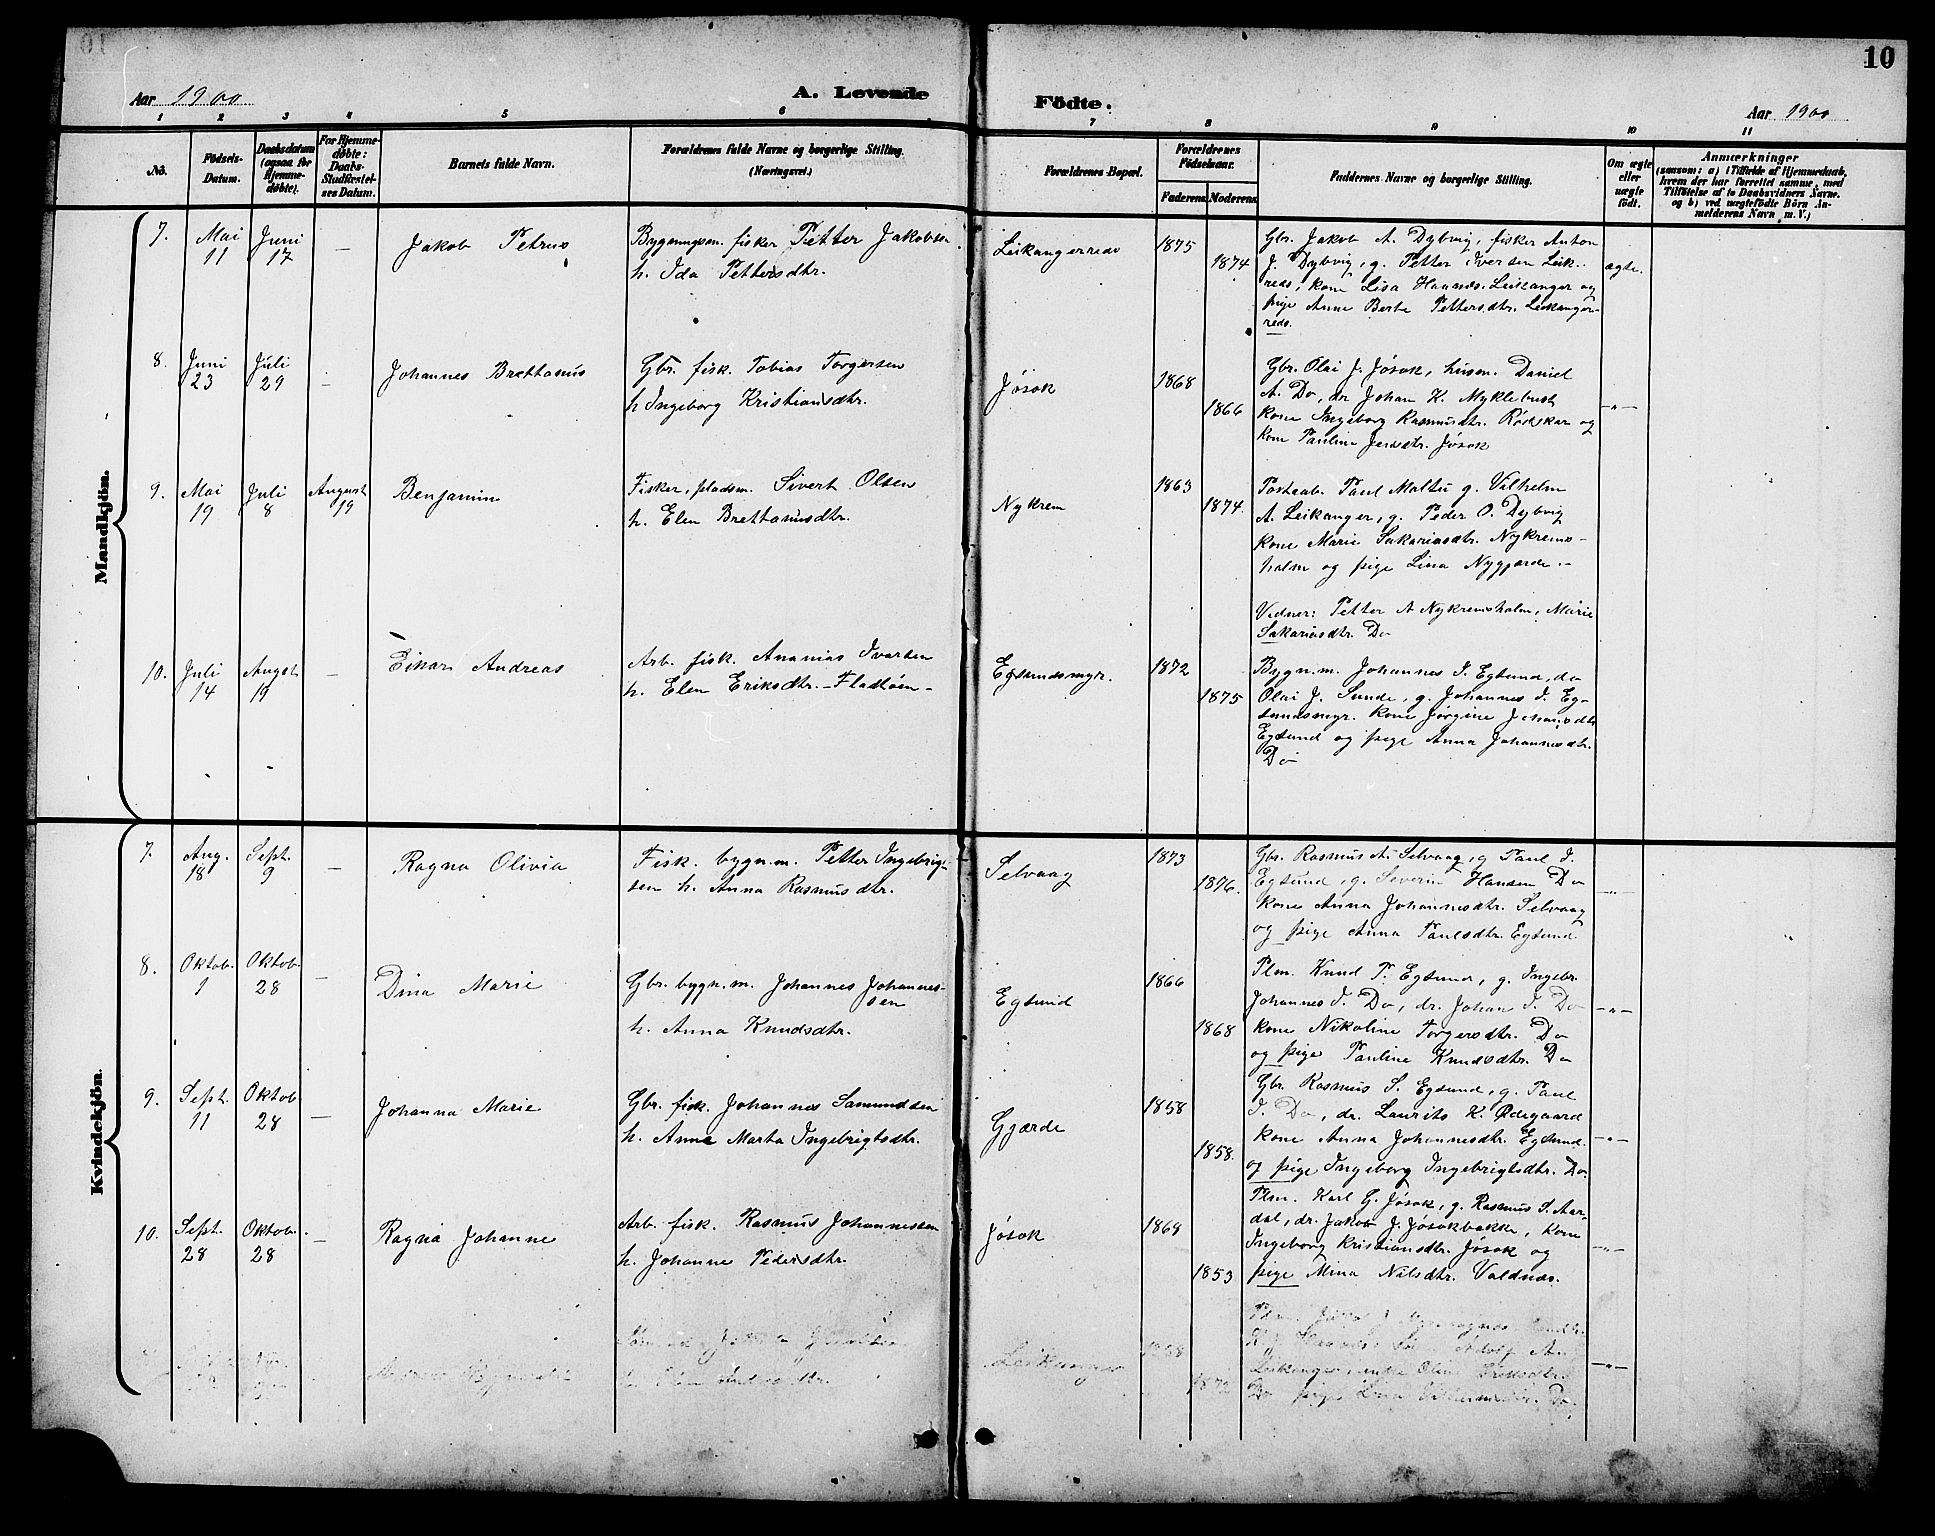 10
Aar 1900
A. Levende Födte.
Aar 1900
1 2 3 4 5 6 7 8 9 10 11
No.
Födsels-Datum.
Daabsdatum (ogsaa for Hjemme-döbte).
For Hjemme-döbte: Daabs-Stadfæstel-ses Datum.
Barnets fulde Navn.
Forældrenes fulde Navne og borgerlige Stilling.
(Næringsvei.)
Forældrenes Bopæl.
Forældrenes Födselsaar.
Faderens
Moderens
Faddernes Navne og borgerlige Stilling.
Om ægte eller uægte födt.
Anmærkninger
(saasom: a) i Tilfælde af Hjemmedaab,
hvem der har forrettet samme, med
Tilföielse af to Daabsvidners Navne.
og b) ved uægtefödte Börn An-
melderens Navn m. V.)
Mandkjön.
7. Mai 11 Juni 17 — Jakob Petrus
Bygningsm. fisker Petter Jakobsen
h. Ida Pettersdtr.
Leikangerreds 1875 1874
Gbr. Jakob A. Dybvig, fisker Anton
J. Dybvig, g. Petter Iversen Leik.
reds, kone Lisa Hansds. Leikanger og
pige Anne Berte Pettersdtr. Leikanger-
reds.
ægte.
8. Juni 23 Juli 29 — Johannes Brettanus
Gbr. fisk. Tobias Torgersen
h Ingeborg Kristiansdtr.
Jøsok 1868 1866
Gbr. Olai J. Jøsok, husm. Daniel
A. Do, dr Johan K. Myklebust
kone Ingeborg Rasmusdtr. Røiskar og
kone Pauline Jensdtr. Jøsok
—"—
9. Mai 19 Juli 8 August 19 Benjamin
Fisker, pladsm. Sivert Olsen
h. Elen Brettanusdtr.
Nykrem 1863 1874.
Postaab. Paul Maltu g. Vilhelm
A. Leikanger, g. Peder O. Dybvig
kone Marie Sakariasdtr. Nykrems-
holm og pige Lina Nygjærde.-
Vidner: Petter A Nykremsholm, Marie
Sakariasdtr. Do
10. Juli 14 August 19 — Einar Andreas
Arb. fisk. Ananias Ivarsen
h. Elen Eriksdtr.
Egsundsmyr. 1872 1875
Bygn.m. Johannes I. Egsund, do
Olai J. Sunde, g. Johannes I. Eg-
sundsmyr. kone Jørgine Johansdtr
Egsund og pige Anna Johannesdtr.
Do
Kvindekjön.
7. Aug. 18 Sept. 9 — Ragna Olivia
Fisk. bygn.m. Petter Ingebrigt-
sen h. Anna Rasmusdtr.
Selvaag 1873 1876.
Gbr. Rasmus A. Selvaag, g Paul I.
Egsund, g. Severin Hansen Do
kone Anna Johannesdtr. Selvaag
og pige Anna Paulsdtr. Egsund.
—"—
8. Oktob. 1 Oktob. 28 — Dina Marie
Gbr. bygn.m. Johannes Johannes-
sen
h. Anna Knudsdtr.
Egsund 1866 1868
Plm. Knud P. Egsund, g. Ingebr.
Johannes I. Do, dr. Johan I. Do
kone Nikoline Torgersdtr. Do
og pige Pauline Knudsdtr. Do
—"—
9. Sept. 11 Oktob 28 — Johanna Marie
Gbr. fisk. Johannes Samundsen
h. Anne Marta Ingebrigtsdtr.
Gjærde 1858 1858.
Gbr. Rasmus S. Egsund, g. Paul
I. Do, dr. Laurits K. Ødegaard
kone Anna Johannesdtr. Egsund.
og pige Ingeborg Ingebrigtsdtr. Do.
—"—
10. Sept. 28 Oktob. 28 — Ragna Johanne
Arb. fisk. Rasmus Johannessen
h. Johanne Pedersdtr.
Jøsok 1868 1853
Plm. Karl G. Jøsok, g. Rasmus S. Aar-
dal, dr. Jakob J. Jøsokbakke, kone
Ingeborg Kristiansdtr. Jøsok og
pige Mina Nilsdtr. Valdnæs.
—"—
Leikanger
Leikanger
Do pige Lina Do.
—"—